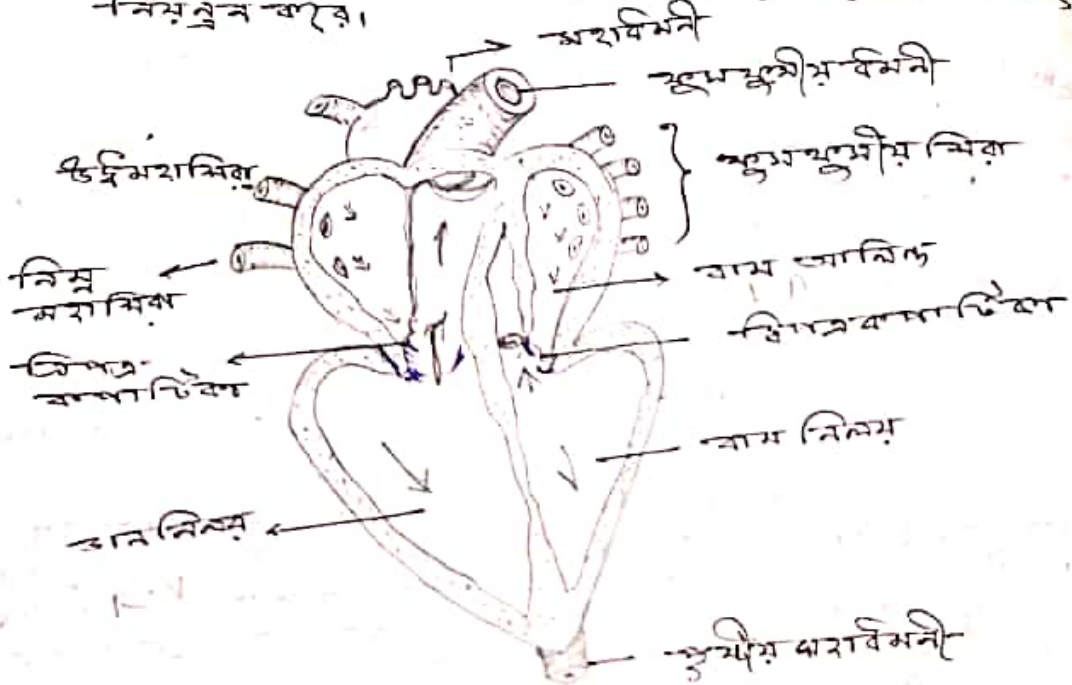 নিয়ন্ত্রন করে।
মহাধমনী
ফুসফুসীয় ধমনী
ঊর্দ্ধমহাশিরা
ফুসফুসীয় শিরা
নিম্ন
মহাশিরা
বাম অলিন্দ
ত্রিপত্র
কপাটিকা
দ্বিপত্রকপাটিকা
বাম নিলয়
ডান নিলয়
পৃষ্ঠীয় মহাধমনী